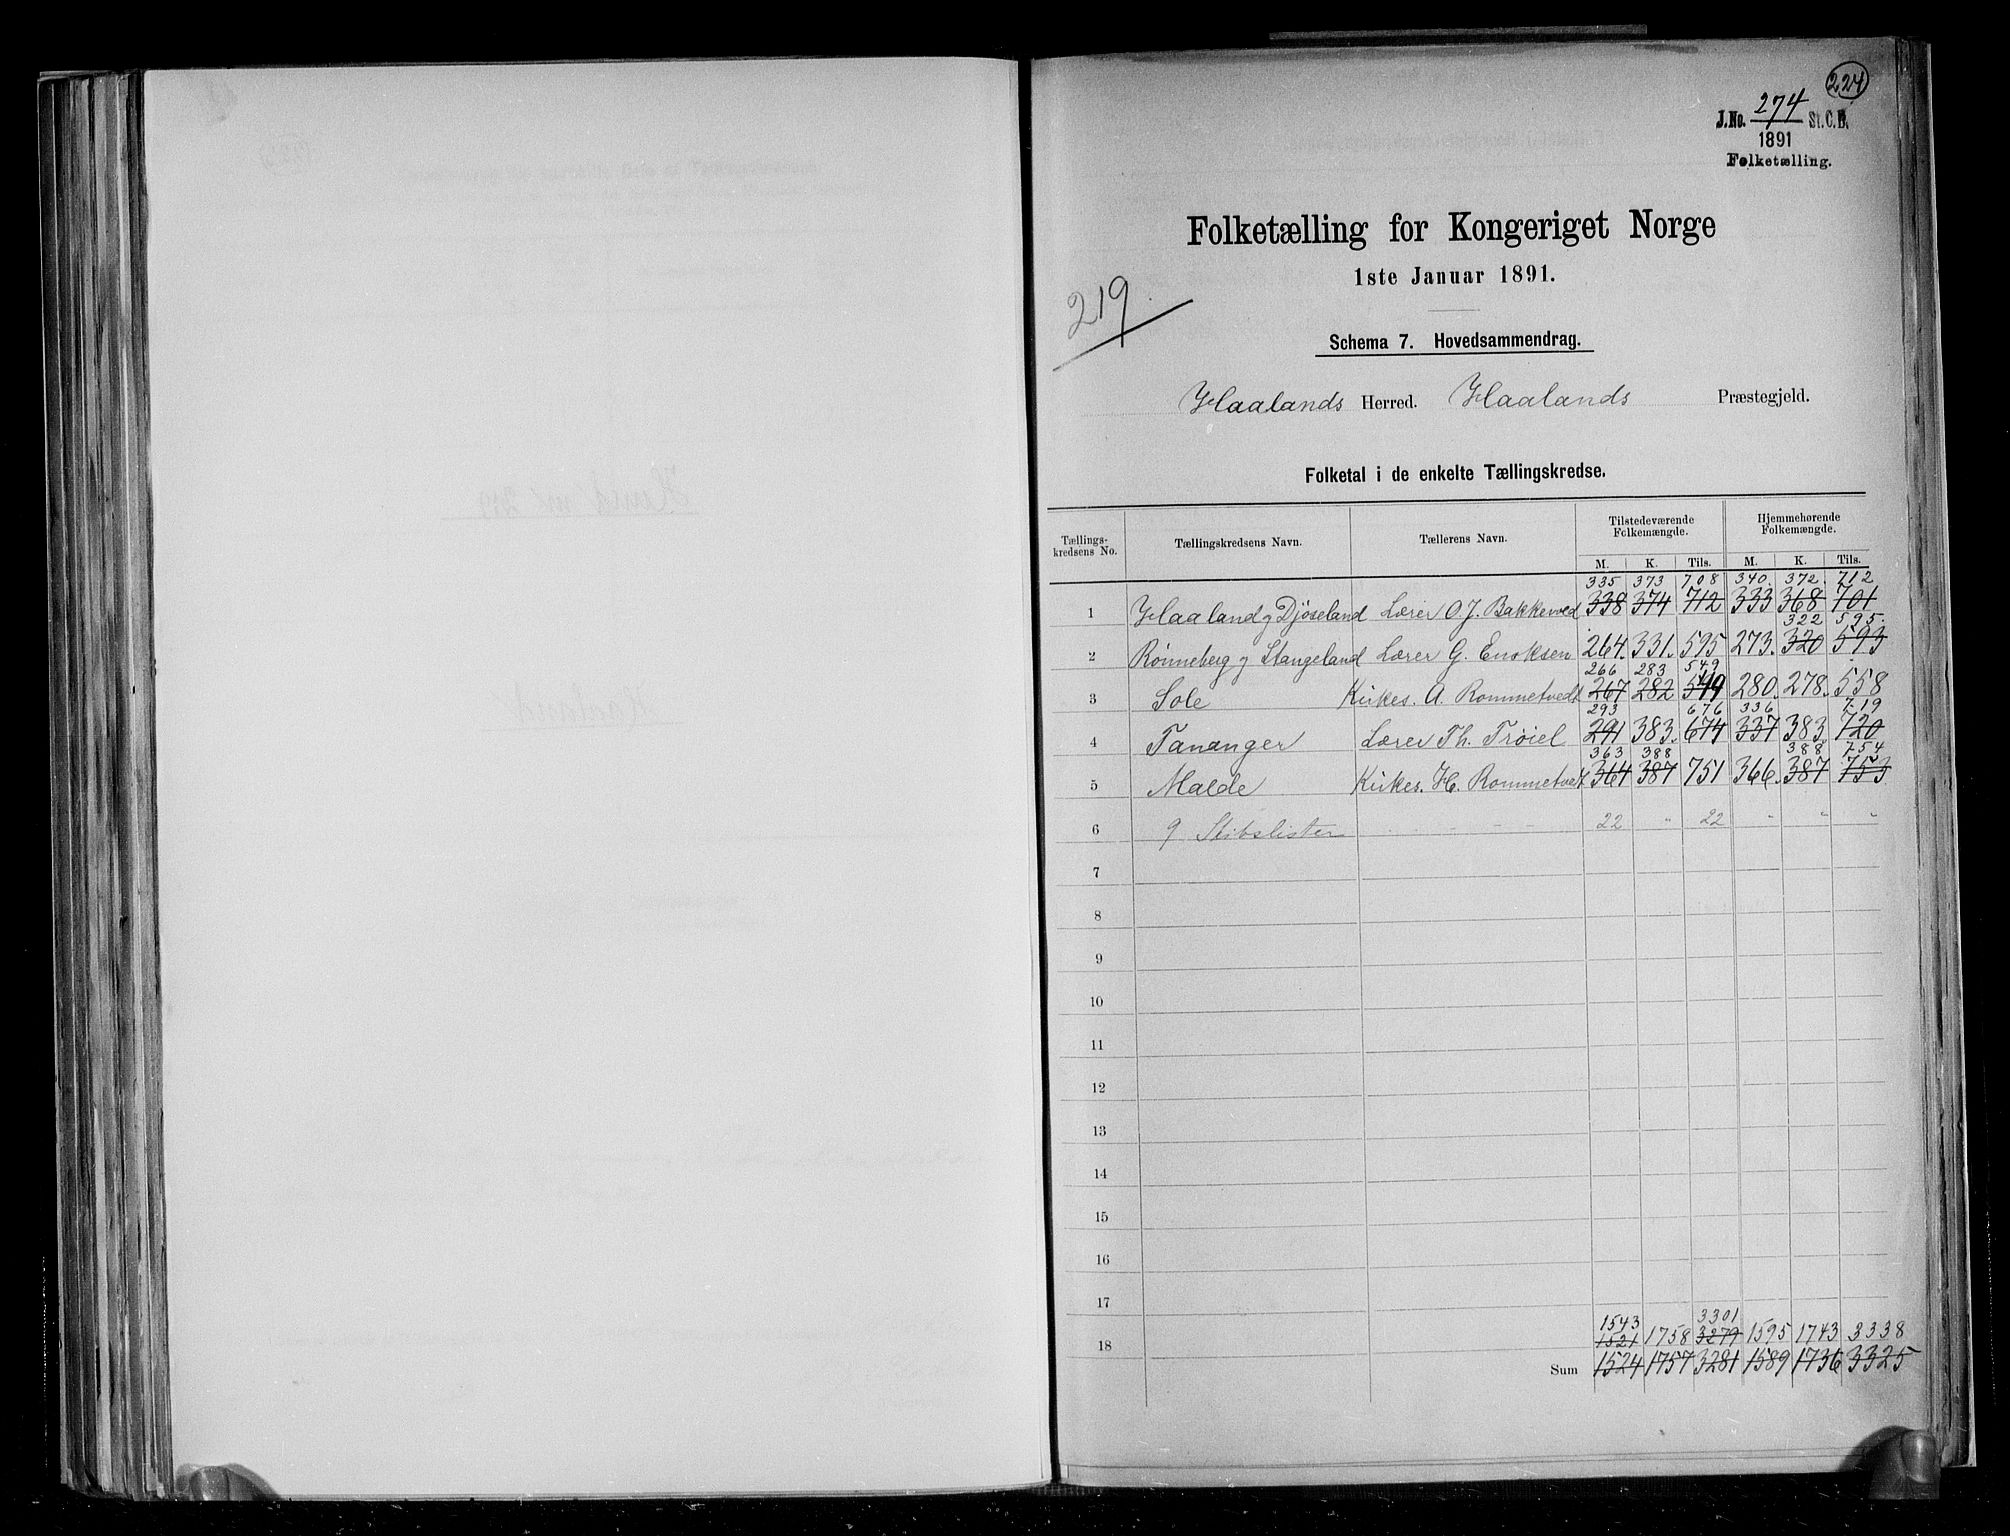 224
J.No. 274 St.C.B.
1891
Folketælling.
Folketælling for Kongeriget Norge
1ste Januar 1891.
219
Schema 7. Hovedsammendrag.
Haalands Herred. Haalands Præstegjeld.
Folketal i de enkelte Tællingskredse.
Tællings-kredsens No. Tællingskredsens Navn. Tællerens Navn. Tilstedeværende Folkemængde. Hjemmehørende Folkemængde.
M. K. Tils. M. K. Tils.
335 373 708 340. 372. 712
1 Haaland og Djöseland Lærer O. J. Bakkeved 338 374 712 333 368 701
322 595.
2 Rönneberg og Stangeland Lærer G. Enoksen 264. 331. 595 273. 320 593
266 283 549
3 Sole Kirkes. A. Rommetvedt 267 282 549 280. 278. 558
293 676 336 719
4 Tananger Lærer Th. Tröiel 291 383. 674 337 383. 720
363 388 388. 754
5 Malde Kirkes. H. Rommetvedt 364 387 751 366. 387 753
6 9 Skibslister - - - - 22 " 22 " " "
7
8
9
10
11
12
13
14
15
16
17
1543 3301
18 1521 1758 3279 1595 1743 3338
Sum 1524 1757 3281 1589 1736 3325